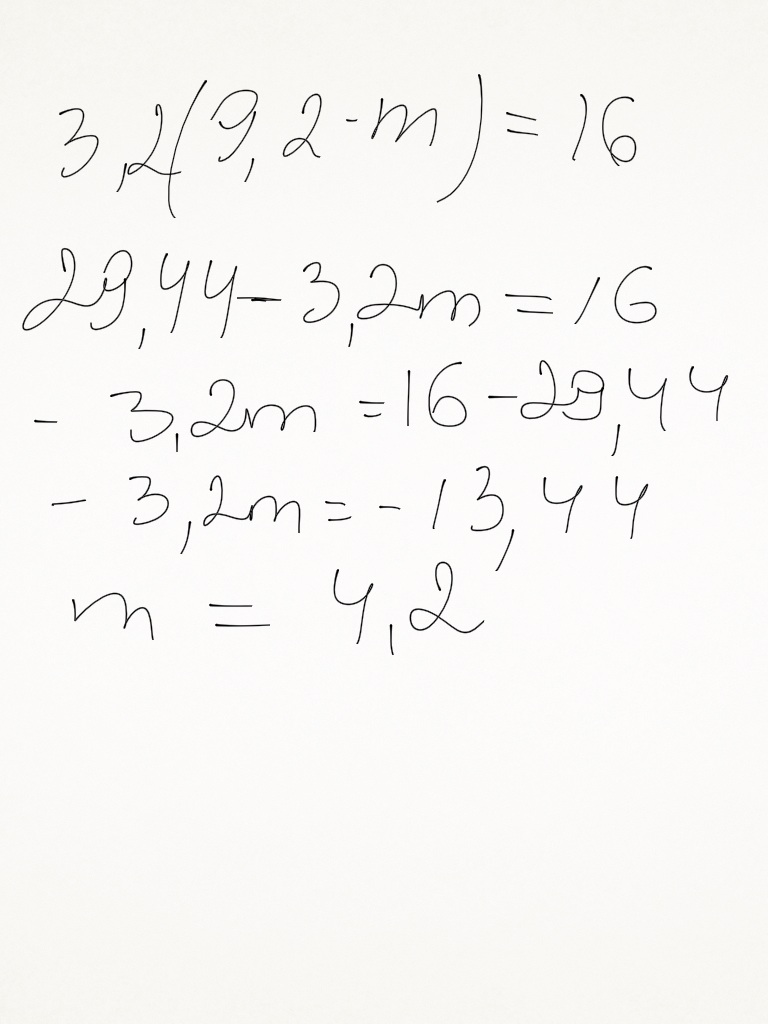 3,2(9,2-m)=16
29,44-3,2m=16
- 3,2m =16-29,44
- 3,2m=-13,44
m = 4,2